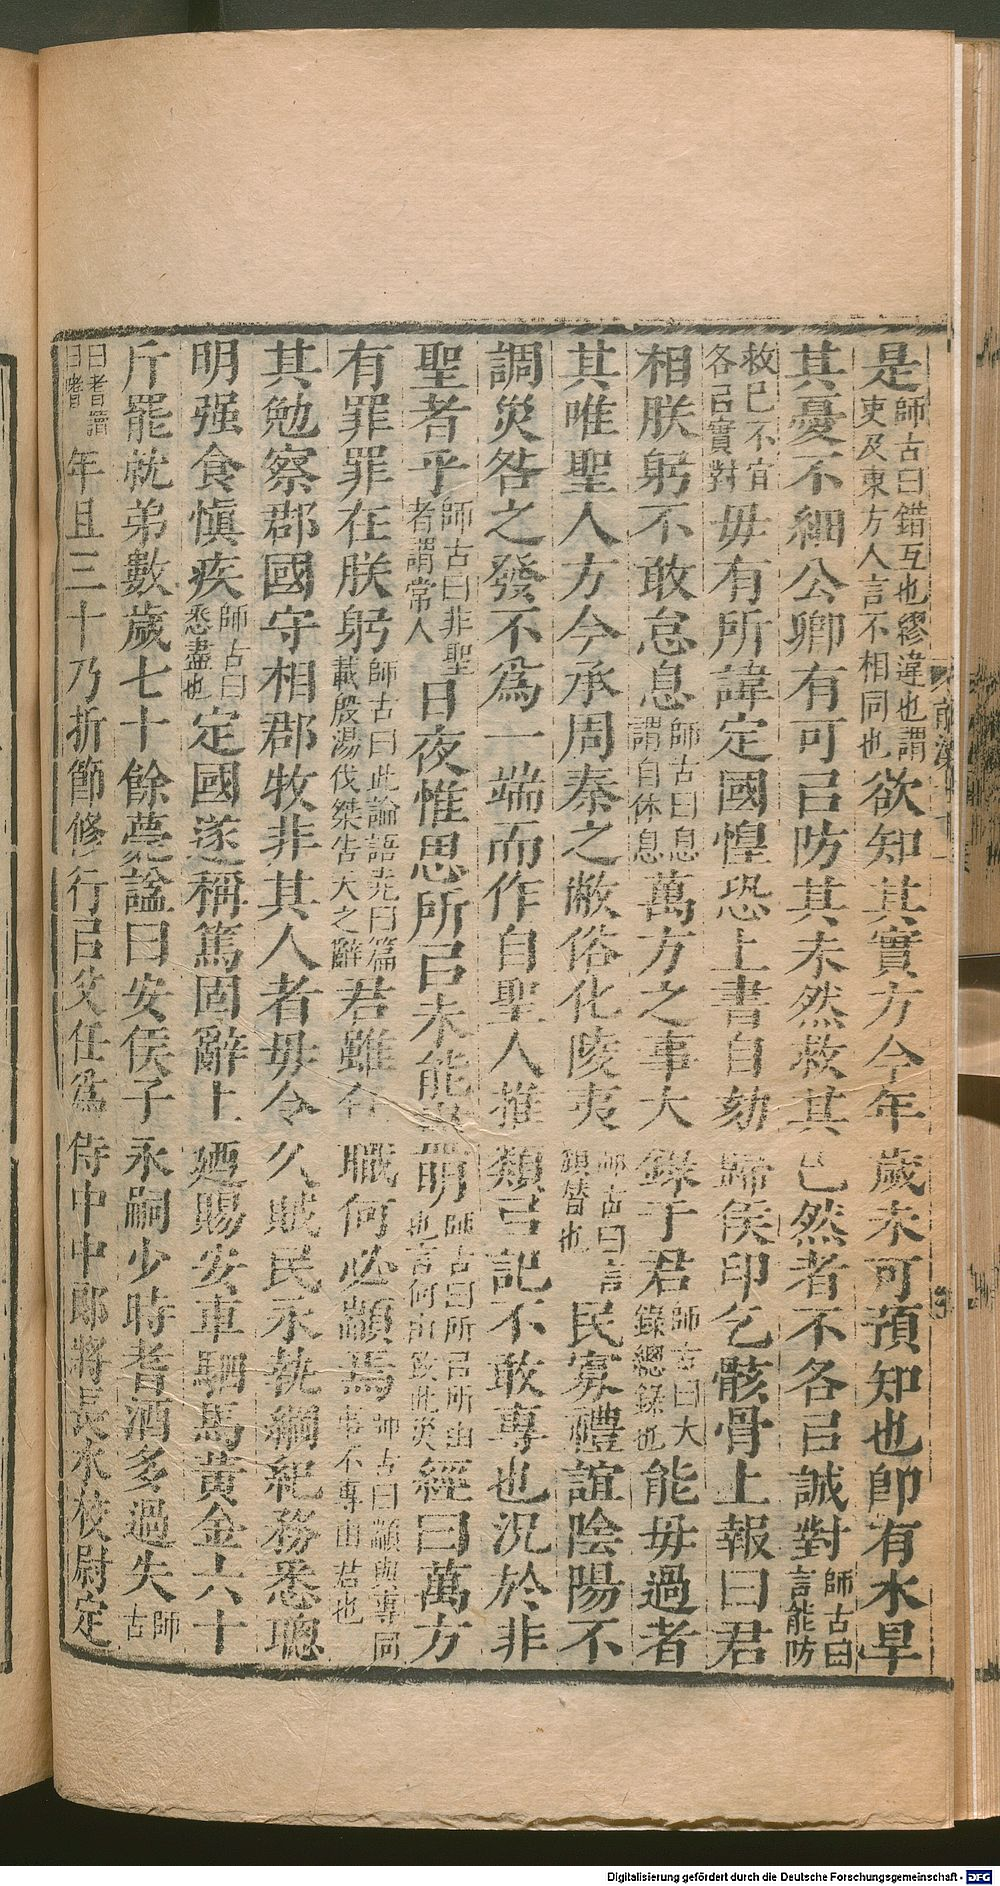 是師古曰錯互也繆違也謂吏及東方人言不相同也欲知其實方今年歲未可預知也即有水旱
其憂不細公卿有可㠯防其未然救其已然者不各㠯誠對師古曰言能防
救已不宜各㠯實對毋有所諱定國惶恐上書自劾歸侯印乞骸骨上報曰君
相朕躬不敢怠息師古曰息謂自休息萬方之事大錄于君師古曰大錄總錄也能毋過者
其唯聖人方今承周秦之敝俗化陵夷師古曰言頹替也民寡禮誼陰陽不
調災咎之發不爲一端而作自聖人推類㠯記不敢專也況於非
聖者乎師古曰非聖者謂常人日夜惟思所㠯未能盡明師古曰所㠯所由也言何由致此災經曰萬方
有罪罪在朕躬師古曰此論語堯曰篇載殷湯伐桀告天之辭君雖任職何必顓焉師古曰顓與專同事不專由君也
其勉察郡國守相郡牧非其人者毋令久賊民永執綱紀務悉聰
明强食愼疾師古曰悉盡也定國遂稱篤固辭上廼賜安車駟馬黃金六十
斤罷就弟數歲七十餘薨諡曰安侯子永嗣少時耆酒多過失師古
曰耆讀曰嗜年且三十乃折節修行㠯父任爲侍中中郎將長水校尉定
Digitalisierung gefördert durch die Deutsche Forschungsgemeinschaft - DFG